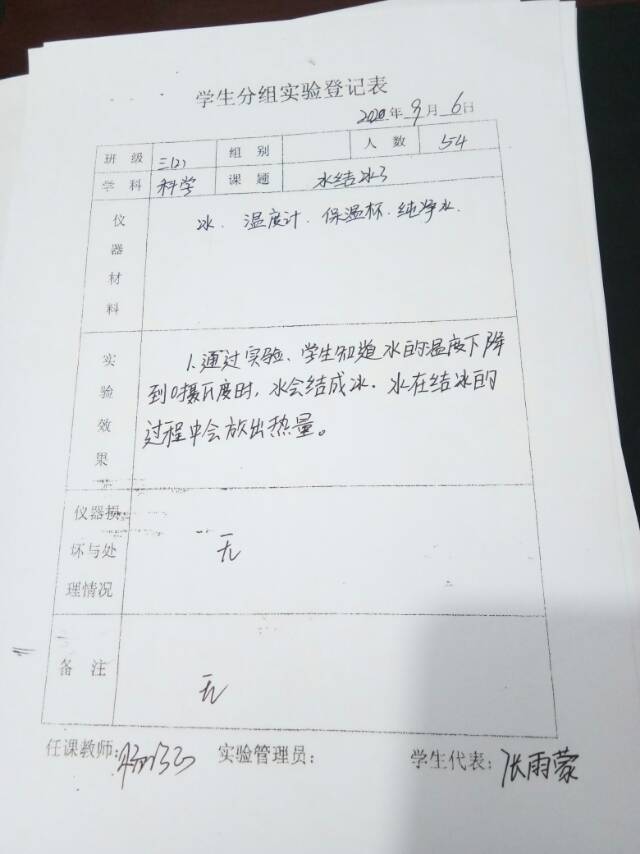 学生分组实验登记表
2020年9月6日
班级 三(2) 组别 人数 54
学科 科学 课题 水结冰了
仪器材料 冰、温度计、保温杯、纯净水.
实验效果
1.通过实验、学生知道水的温度下降
到0摄氏度时,水会结成冰.水在结冰的
过程中会放出热量。
仪器损
坏与处
理情况
无
备注
无
任课教师: 实验管理员: 学生代表:张雨蒙